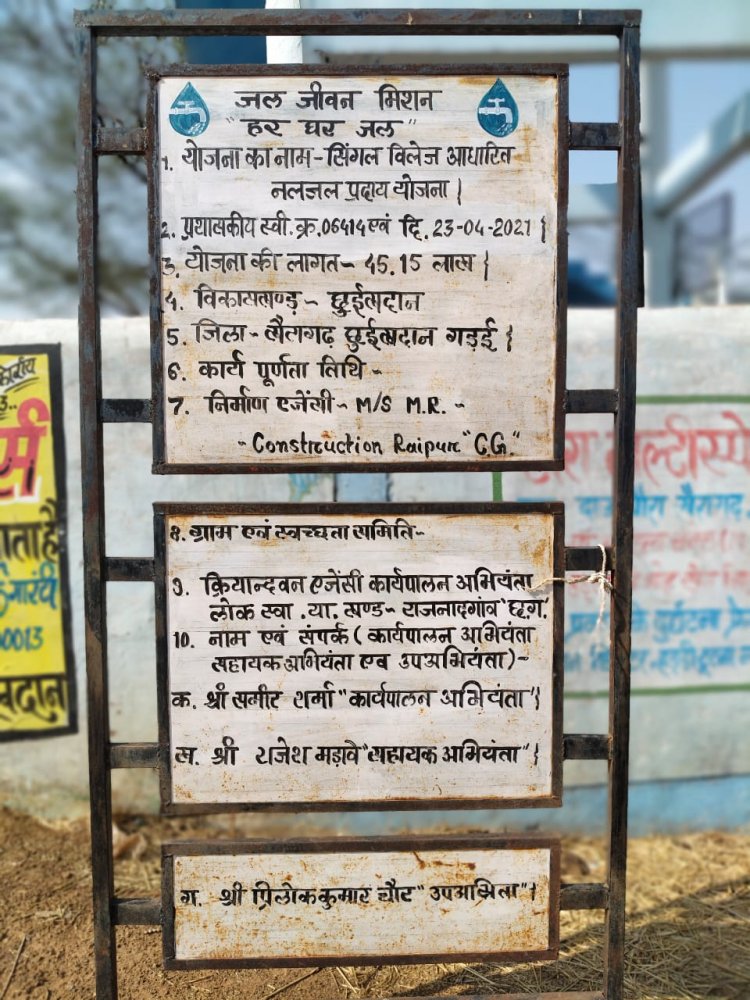 जल जीवन मिशन
"हर घर जल"
1. योजना का नाम - सिंगल विलेज आधारित
नलजल प्रदाय योजना |
2. प्रशासकीय स्वी. क्र. 06414 एवं दि. 23-04-2021 |
3. योजना की लागत - 45.15 लाख |
4. विकासखण्ड़ - छुईखदान
5. जिला - खैरागढ़ छुईखदान गड़ई |
6. कार्य पूर्णता तिथि -
7. निर्माण एजेंसी - M/S M.R. -
- Construction Raipur "C.G."
8. ग्राम एवं स्वच्छता समिति -
9. क्रियान्दवन एजेंसी कार्यपालन अभियंता
लोक स्वा. या. खण्ड - राजनादगांव "छ.ग.'
10. नाम एवं संपर्क (कार्यपालन अभियंता
सहायक अभियंता एव उपअभियंता) -
क. श्री समीर शर्मा "कार्यपालन अभियंता" |
ख. श्री राजेश मड़ावे "सहायक अभियंता" |
ग. श्री त्रिलोक कुमार "उपअभिता" |
र्स
गारंटी
0013